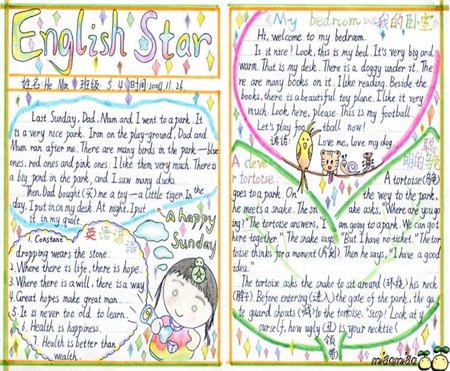 English Star
姓名: He Min 班级 5.4 时间 2004.11.26.
Last Sunday, Dad, Mum and I went to a park. It
is a very nice park. I ran on the play-ground, Dad and
Mum ran after me. There are many birds in the park—blue
ones, red ones and pink ones. I like them very much. There is
a big pond in the park, and I saw many ducks.
Then Dad bought (买) me a toy—a little tiger. In the
day, I put it on my desk. At night, I put
it in my quilt.
A happy
Sunday
英语谚语
1. Constant
dropping wears the stone.
2. Where there is life, there is hope.
3. Where there is a will, there is a way
4. Great hopes make great man.
5. It is never too old to learn.
6. Health is happiness.
7. Health is better than
wealth.
My bedroom 我的卧室
Hi, welcome to my bedroom.
Is it nice? Look, this is my bed. It's very big and
warm. That is my desk. There is a doggy under it. The
re are many books on it. I like reading. Beside the
books, there is a beautiful toy plane. I like it very
much. Look here, please. This is my football.
Let's play foo tball now!
谚语: Love me, love my dog.
A clever tortoise
聪明的乌龟
A tortoise (乌龟)
goes to a park. On the way to the park,
he meets a snake. The snake asks, "Where are you go
ing?" The tortoise answers, "I am going to a park. We can go t
here together." The snake says, "But I have no ticket." The tor
toise thinks for a moment (片刻). Then he says, "I have a good
idea."
The tortoise asks the snake to sit around (环绕) his neck
(脖子). Before entering (进入) the gate of the park, the ga
te guard shouts (喊) to the tortoise. "Stop! Look at y
ourself, how ugly (丑) is your necktie (
领
带)